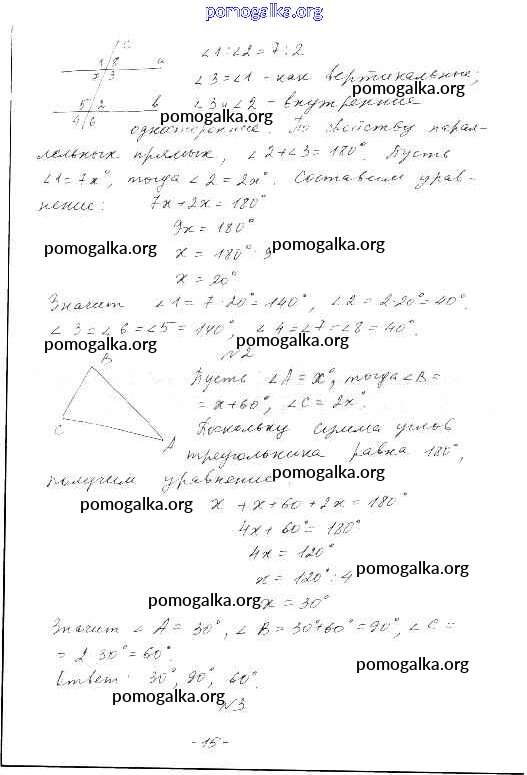 pomogalka.org
c
1 8 a
7 3
5 2 b
4 6
∠1:∠2=7:2
∠3=∠1 - как вертикальные;
pomogalka.org pomogalka.org
∠3 и ∠2 - внутренние
односторонние. По свойству парал-
лельных прямых, ∠2+∠3=180°. Пусть
pomogalka.org pomogalka.org
∠1=7x°, тогда ∠2=2x°. Составим урав-
нение: 7x+2x=180°
9x=180°
pomogalka.org pomogalka.org
x=180°:9
x=20°
Значит ∠1=7·20°=140°, ∠2=2·20°=40°.
∠3=∠6=∠5=140°, ∠4=∠7=∠8=40°.
pomogalka.org pomogalka.org
N2
B
C
A
Пусть ∠A=x°, тогда ∠B=
=x+60°, ∠C=2x°.
pomogalka.org
Поскольку сумма углов
треугольника равна 180°,
pomogalka.org
получим уравнение:
pomogalka.org
x+x+60+2x=180°
4x+60°=180°
4x=120°
pomogalka.org
x=120°:4
pomogalka.org
x=30°
Значит ∠A=30°, ∠B=30°+60°=90°, ∠C=
=2·30°=60°.
pomogalka.org
Ответ: 30°, 90°, 60°.
pomogalka.org
N3
-15-